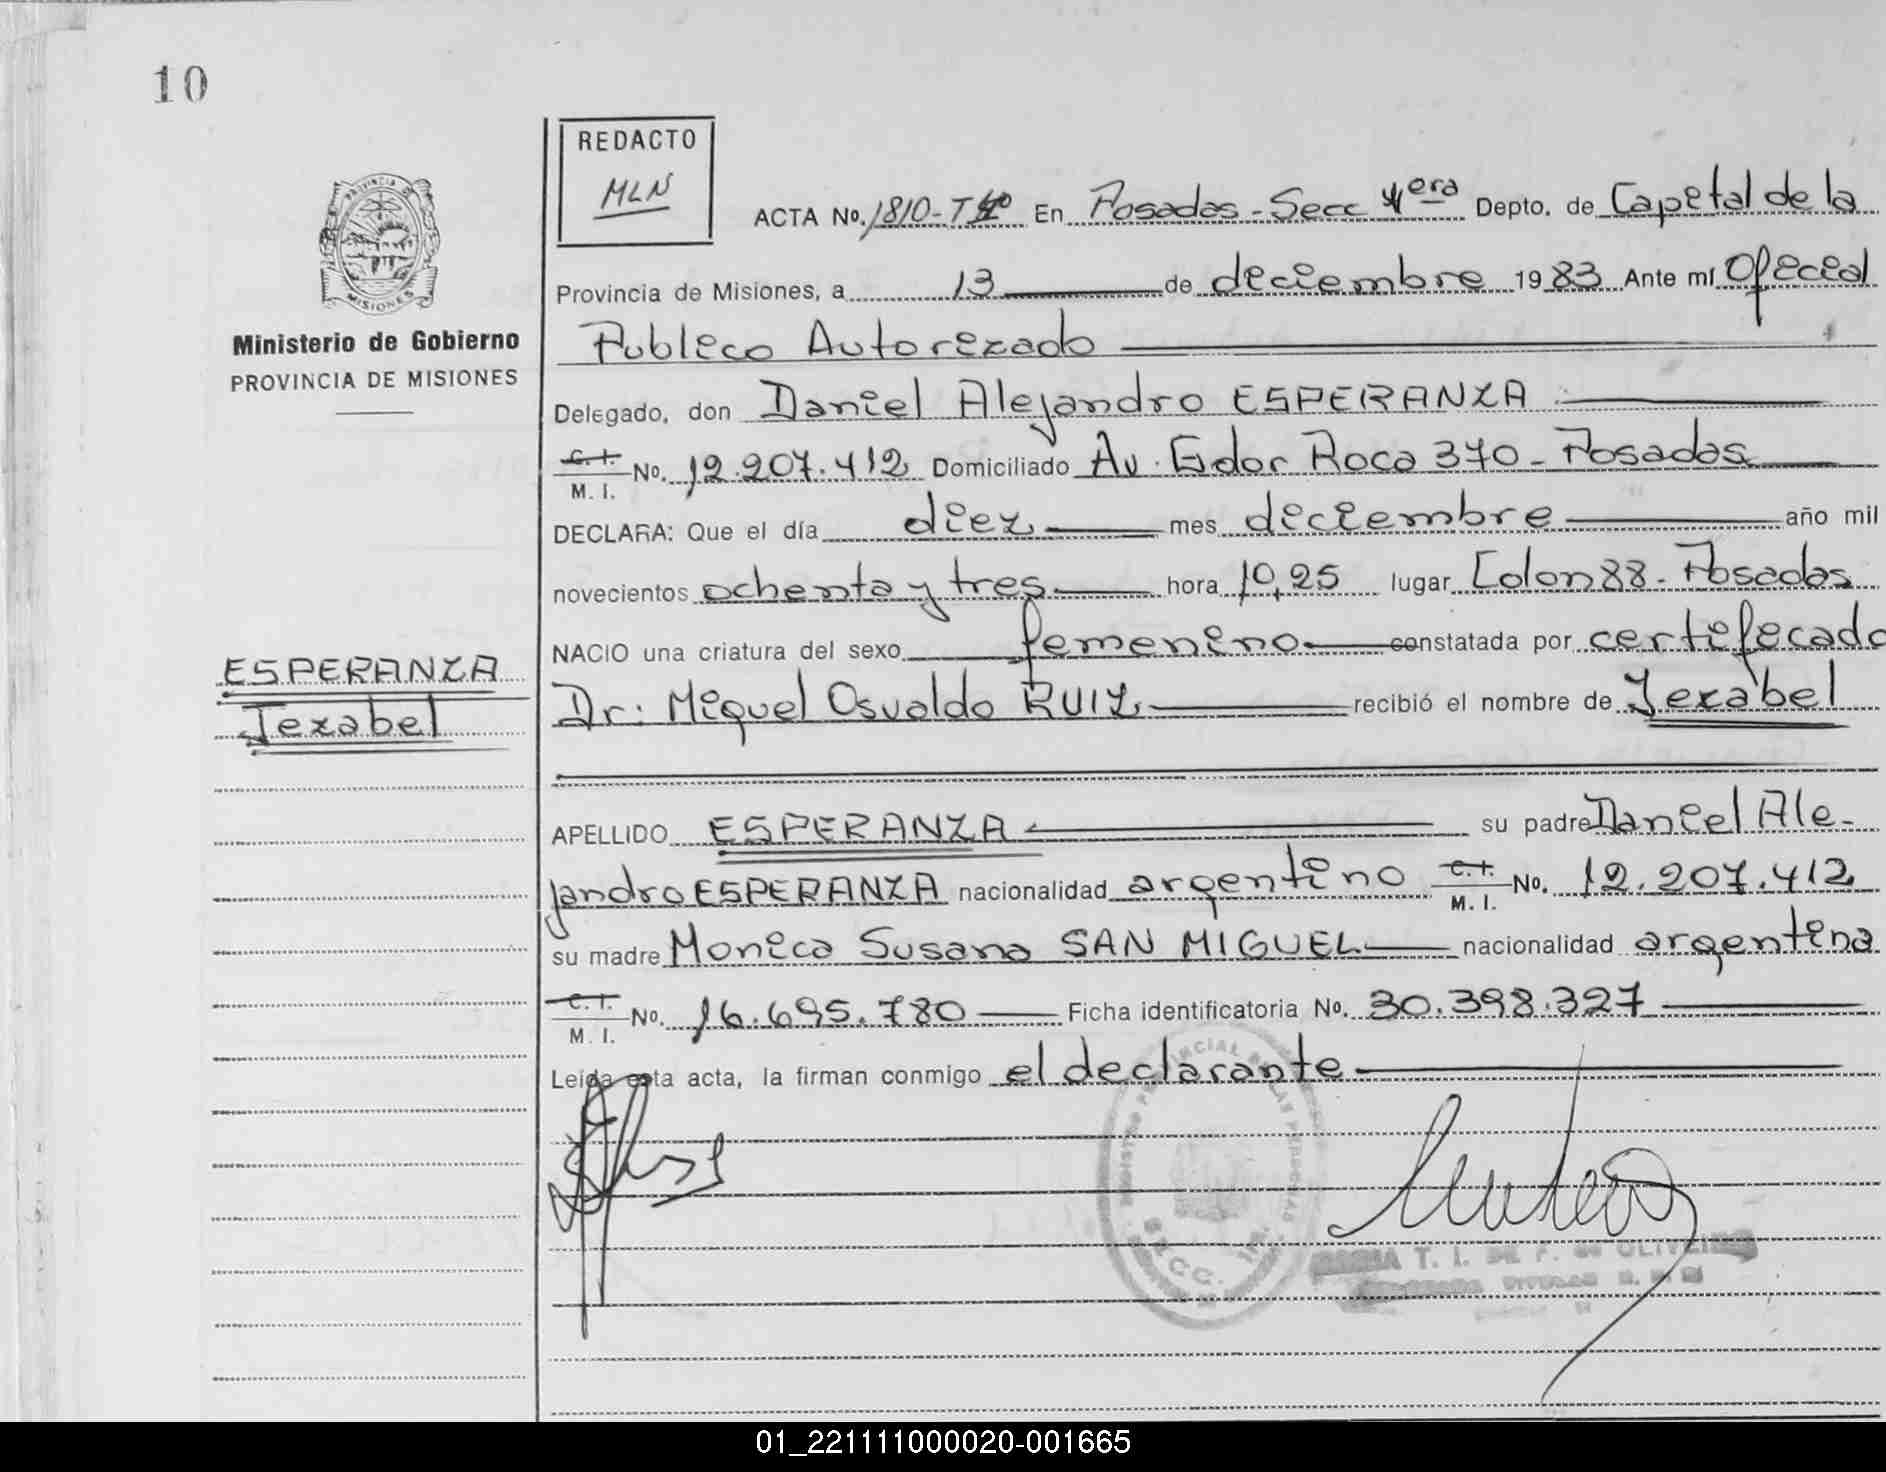 10
REDACTO
MLN
PROVINCIA DE
MISIONES
Ministerio de Gobierno
PROVINCIA DE MISIONES
ESPERANZA
Jezabel
ACTA No. 1810-Tº En Posadas - Secc 1era Depto. de Capital de la
Provincia de Misiones, a 13 de diciembre 1983 Ante mí Oficial
Publico Autorizado
Delegado, don Daniel Alejandro ESPERANZA
C. I. / M. I. No. 12.207.412 Domiciliado Av. Gdor Roca 370 - Posadas
DECLARA: Que el día diez mes diciembre año mil
novecientos ochenta y tres hora 10,25 lugar Colon 88 - Posadas
NACIO una criatura del sexo femenino constatada por certificado
Dr. Miguel Osvaldo RUIZ recibió el nombre de Jezabel
APELLIDO ESPERANZA su padre Daniel Ale-
jandro ESPERANZA nacionalidad argentino C. I. / M. I. No. 12.207.412
su madre Monica Susana SAN MIGUEL nacionalidad argentina
C. I. / M. I. No. 16.695.780 Ficha identificatoria No. 30.398.327
Leída esta acta, la firman conmigo el declarante
REGISTRO PROVINCIAL DE LAS PERSONAS
SECC. 1ra.
T. I. DE F. de OLIVEIRA
TITULAR
01_221111000020-001665